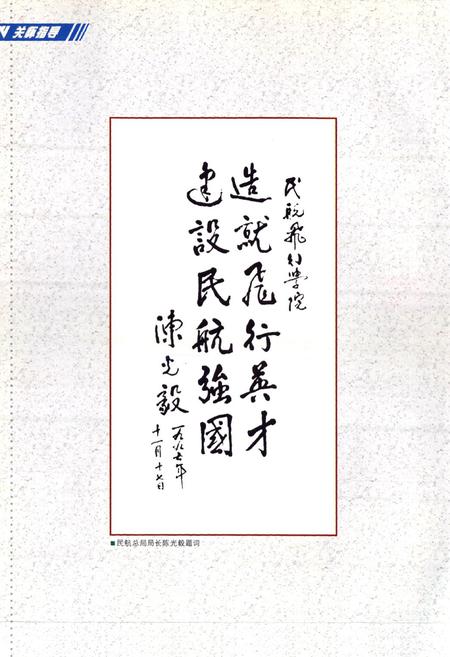 关怀指导
民航飞行学院
造就飞行英才
建設民航強國
陈光毅
一九九六年
十一月十七日
■民航总局局长陈光毅题词